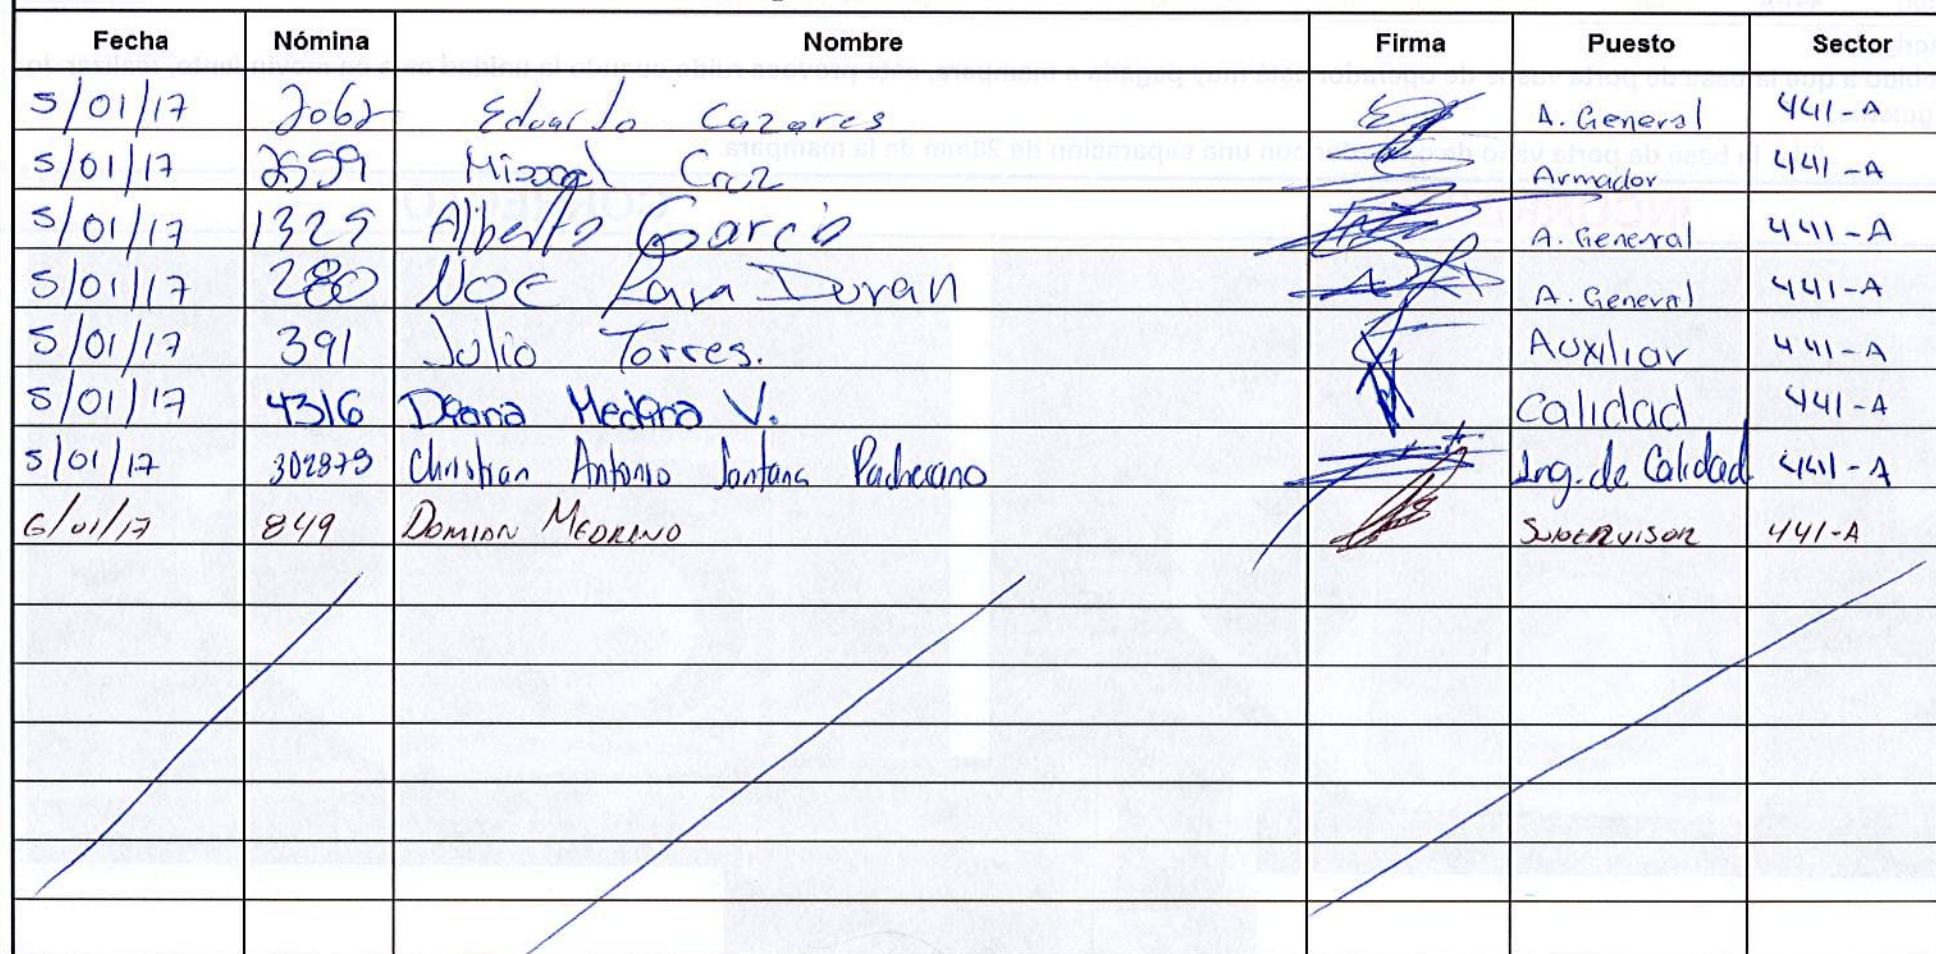 Fecha Nómina Nombre Firma Puesto Sector
5/01/17 2062 Eduardo Cazares A. General 441-A
5/01/17 2559 Misael Cruz Armador 441-A
5/01/17 1325 Alberto Garcia A. General 441-A
5/01/17 280 Noe Lara Duran A. General 441-A
5/01/17 391 Julio Torres. Auxiliar 441-A
5/01/17 4316 Deana Medina V. Calidad 441-A
5/01/17 302879 Christian Antonio Santana Ing. de Calidad 441-A
6/01/17 849 Domian Supervisor 441-A